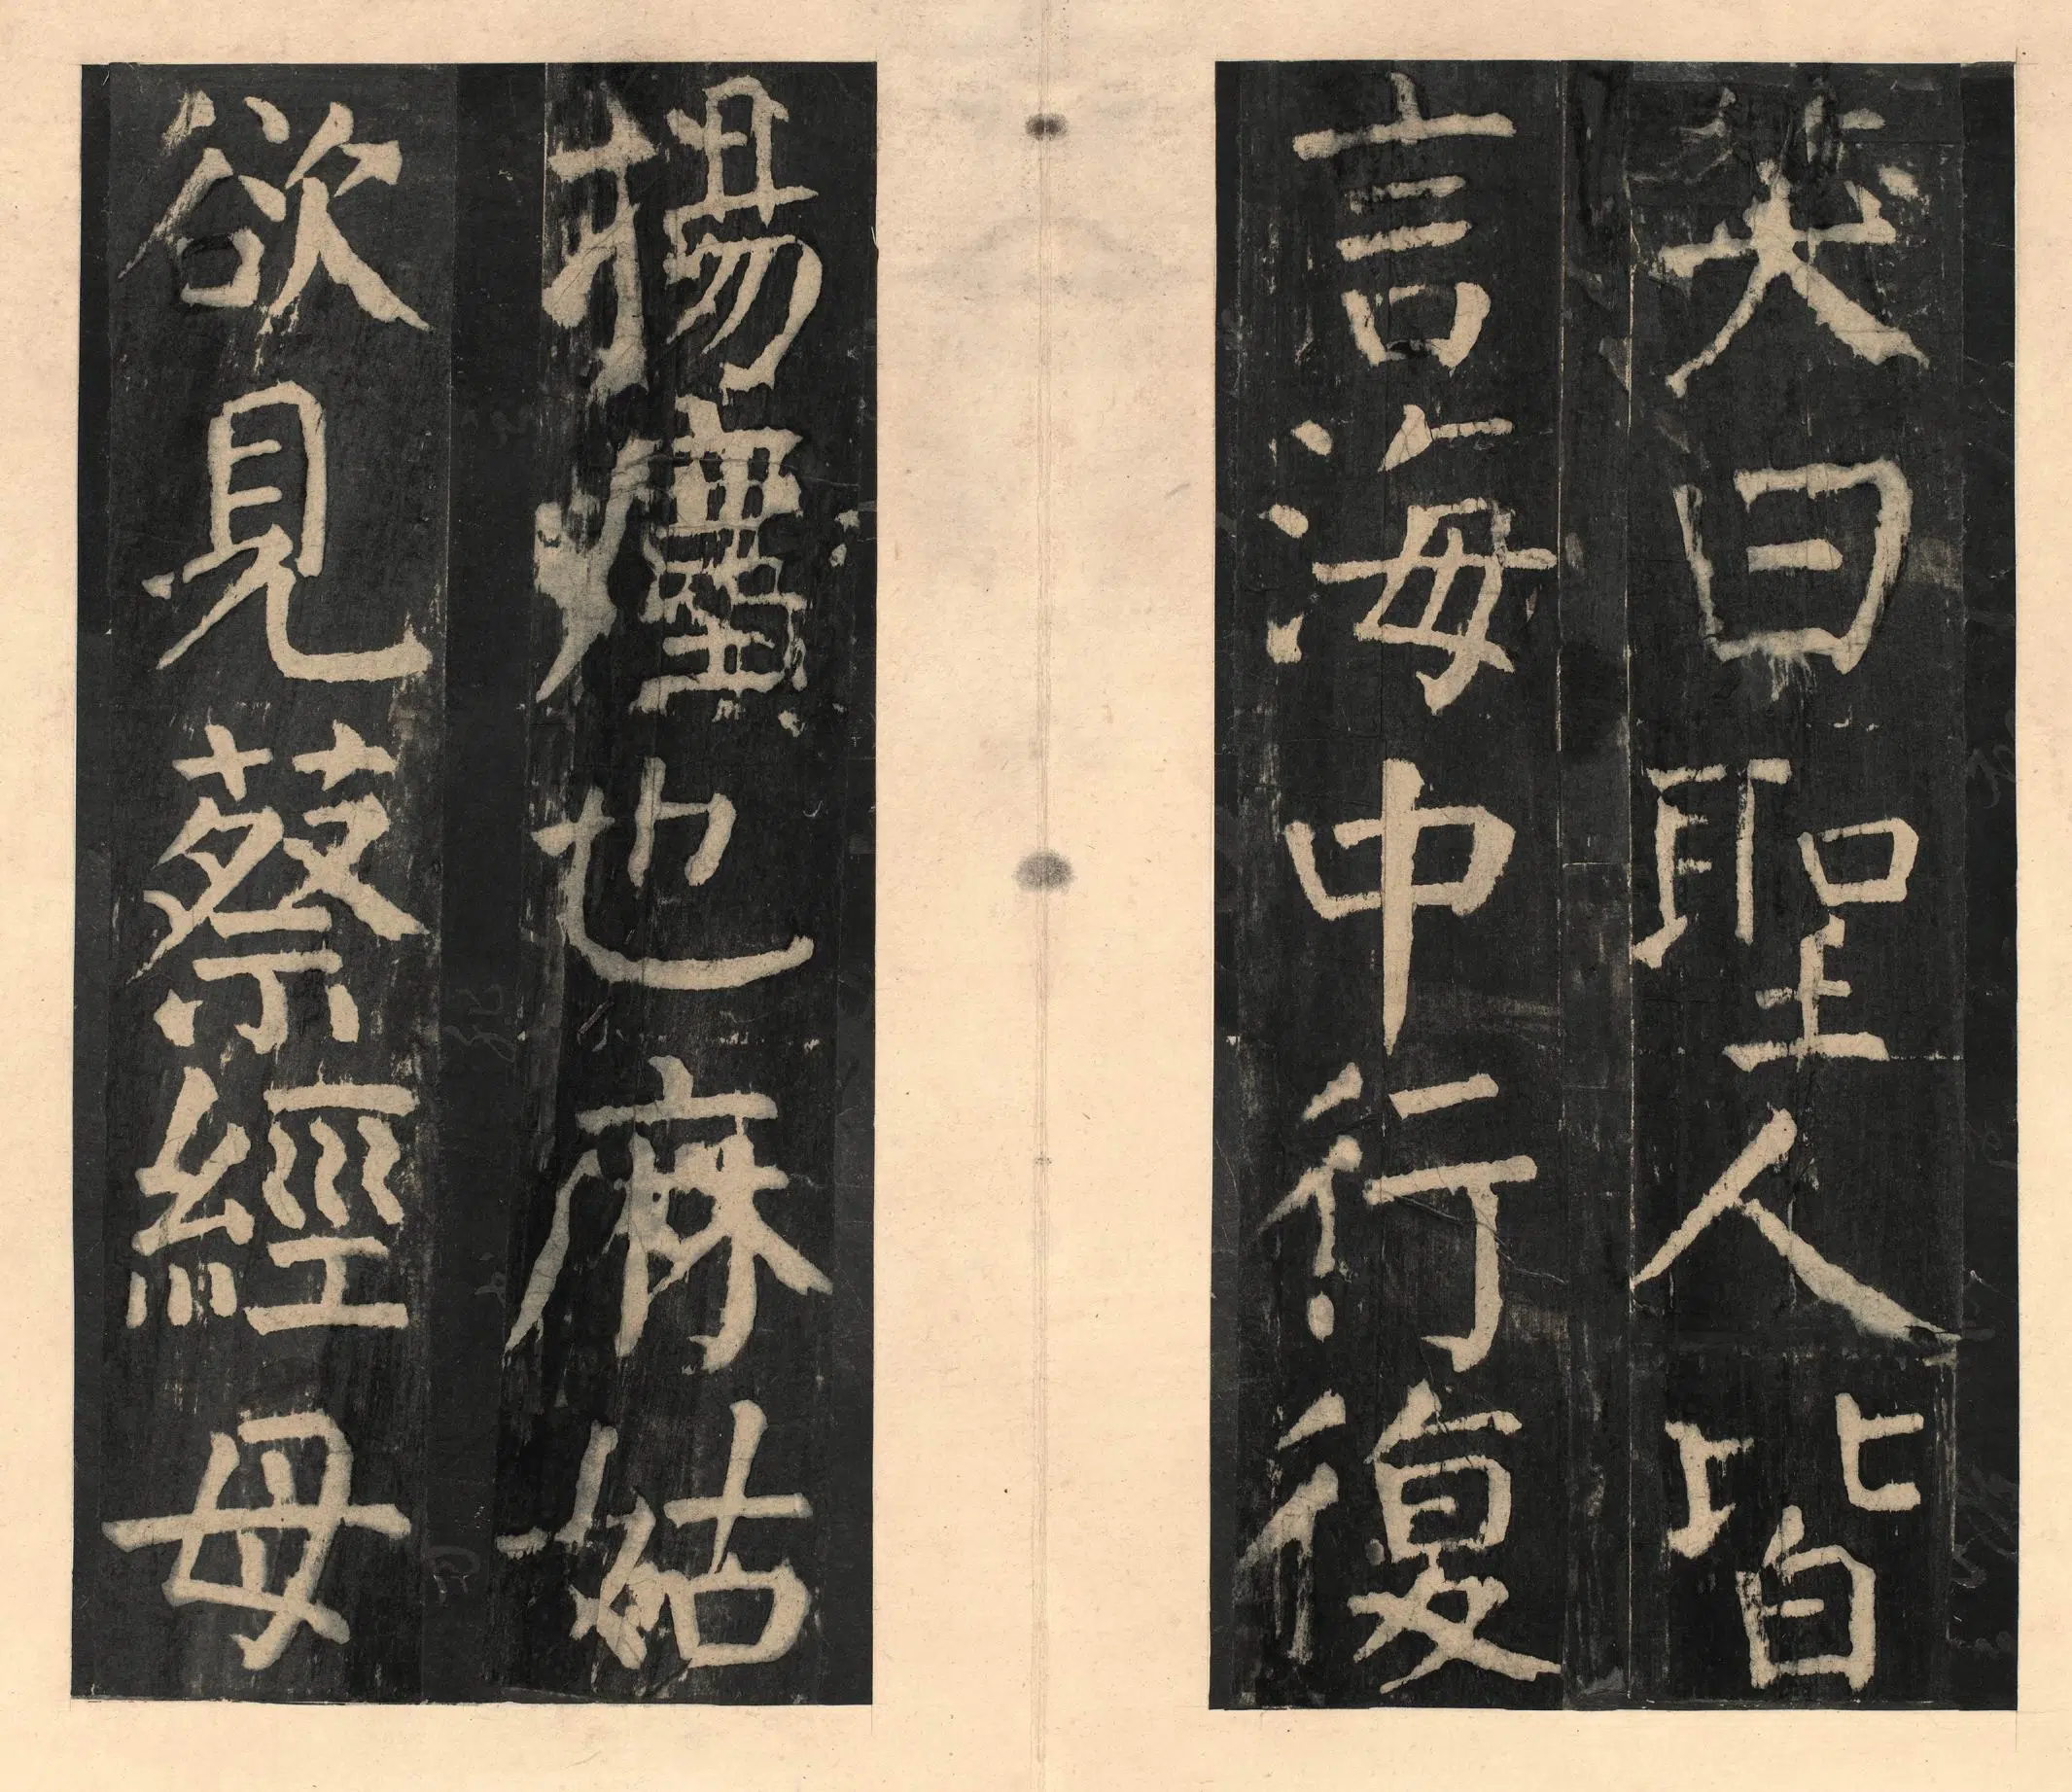 笑曰聖人皆
言海中行復
揚塵也麻姑
欲見蔡經母